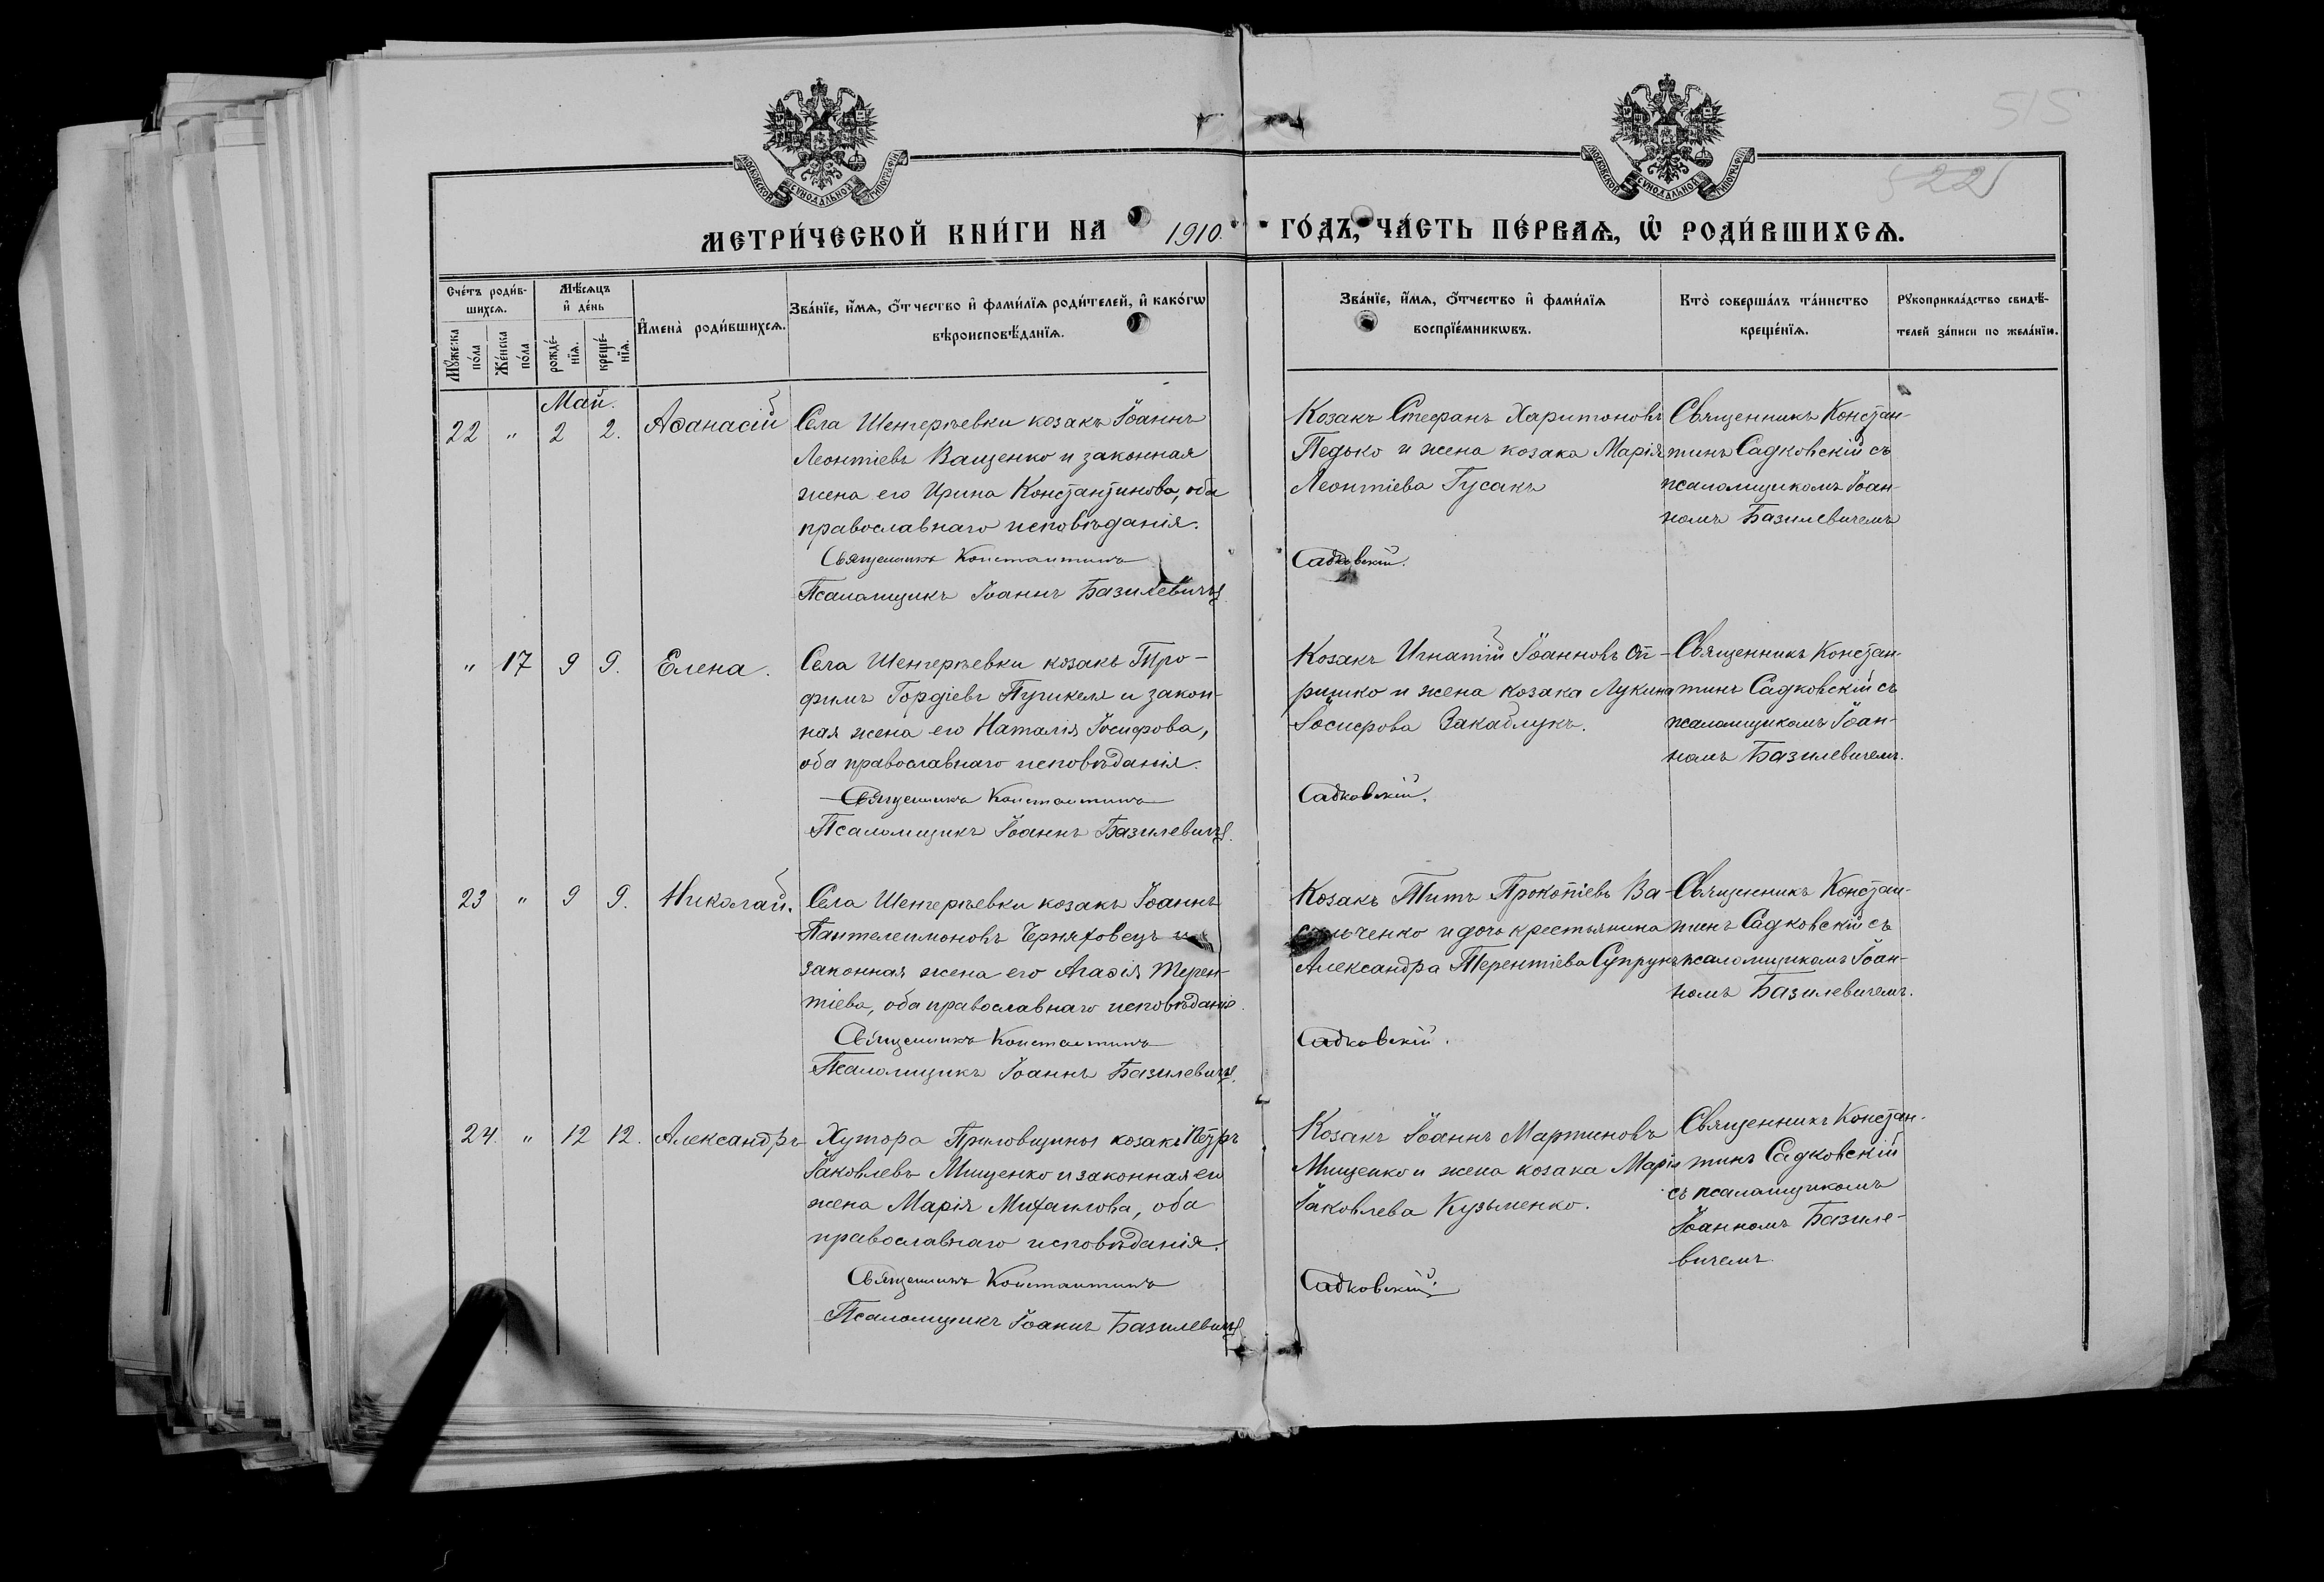 515
522
МОСКОВСКОЙ СѴНОДАЛЬНОЙ ТИПОГРАФІИ
МОСКОВСКОЙ СѴНОДАЛЬНОЙ ТИПОГРАФІИ
МЕТРИ́ЧЕСКОЙ КНИ́ГИ НА 1910. ГО́ДЪ, ЧА́СТЬ ПЕ́РВАѦ, Ѡ҆ РОДИ́ВШИХСѦ.
Сче́тъ роди́в-
шихсѧ.
Мꙋ́жеска
по́ла
Же́нска
по́ла
Мѣ́сѧцъ
и҆ де́нь
рожде́-
нїѧ.
креще́-
нїѧ.
И҆мена̀ роди́вшихсѧ.
Зва́нїе, и҆́мѧ, ѻ҆́тчество и҆ фами́лїѧ роди́телей, и҆ како́гѡ
вѣроисповѣ́данїѧ.
Зва́нїе, и҆́мѧ, ѻ҆́тчество и҆ фами́лїѧ
воспрїе́мникѡвъ.
Кто̀ соверша́лъ та́инство
креще́нїѧ.
Рꙋкоприкла́дство свидѣ́-
телей за́писи по жела́нїю.
Май.
22 " 2 2. Аѳанасій
Села Шенгерѣевки козакъ Іоаннъ
Леонтіевъ Ващенко и законная
жена его Ирина Константинова, оба
православнаго исповѣданія.
Священникъ Константинъ
Псаломщикъ Іоаннъ Базилевичъ
Козакъ Стефанъ Харитоновъ
Педько и жена козака Марія
Леонтіева Гусакъ
Садковскій.
Священникъ Констан-
тинъ Садковскій съ
псаломщикомъ Іоан-
номъ Базилевичемъ
" 17 9 9. Елена.
Села Шенгерѣевки козакъ Тро-
фимъ Гордіевъ и закон-
ная жена его Наталія Іосифова,
оба православнаго исповѣданія.
Священникъ Константинъ
Псаломщикъ Іоаннъ Базилевичъ.
Козакъ Игнатій Іоанновъ Оп-
ришко и жена козака Лукина
Іосифова Закаблукъ.
Садковскій.
Священникъ Констан-
тинъ Садковскій съ
псаломщикомъ Іоан-
номъ Базилевичемъ.
23 " 9 9. Николай.
Села Шенгерѣевки козакъ Іоаннъ
Пантелеимоновъ Черняховецъ и
законная жена его Агаѳія Терен-
тіева, оба православнаго исповѣданія.
Священникъ Константинъ
Псаломщикъ Іоаннъ Базилевичъ.
Козакъ Титъ Прокопіевъ Ва-
сильченко и дочь крестьянина
Александра Терентіева Супрунъ
Садковскій.
Священникъ Констан-
тинъ Садковскій съ
псаломщикомъ Іоан-
номъ Базилевичемъ.
24. " 12 12. Александръ
Хутора козакъ Петръ
Іаковлевъ Мищенко и законная его
жена Марія Михаилова, оба
православнаго исповѣданія.
Священникъ Константинъ
Псаломщикъ Іоаннъ Базилевичъ
Козакъ Іоаннъ Мартиновъ
Мищенко и жена козака Марія
Іаковлева Кузьменко.
Садковскій.
Священникъ Констан-
тинъ Садковскій
съ псаломщикомъ
Іоанномъ Базиле-
вичемъ